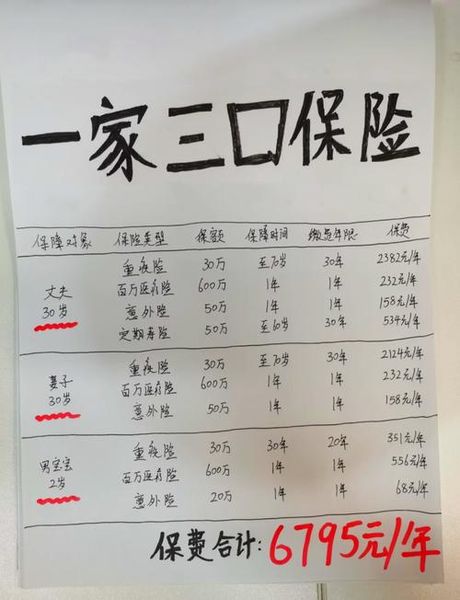 一家三口保险
保障对象 保险类型 保额 保障时间 缴费年限 保费
重疾险 30万 至70岁 30年 2382元/年
丈夫 百万医疗险 600万 1年 1年 232元/年
30岁 意外险 50万 1年 1年 158元/年
定期寿险 50万 至60岁 30年 534元/年
重疾险 30万 至70岁 30年 2124元/年
妻子 百万医疗险 600万 1年 1年 232元/年
30岁 意外险 50万 1年 1年 158元/年
重疾险 30万 30年 20年 351元/年
男宝宝 百万医疗险 600万 1年 1年 556元/年
2岁 意外险 20万 1年 1年 68元/年
保费合计:6795元/年